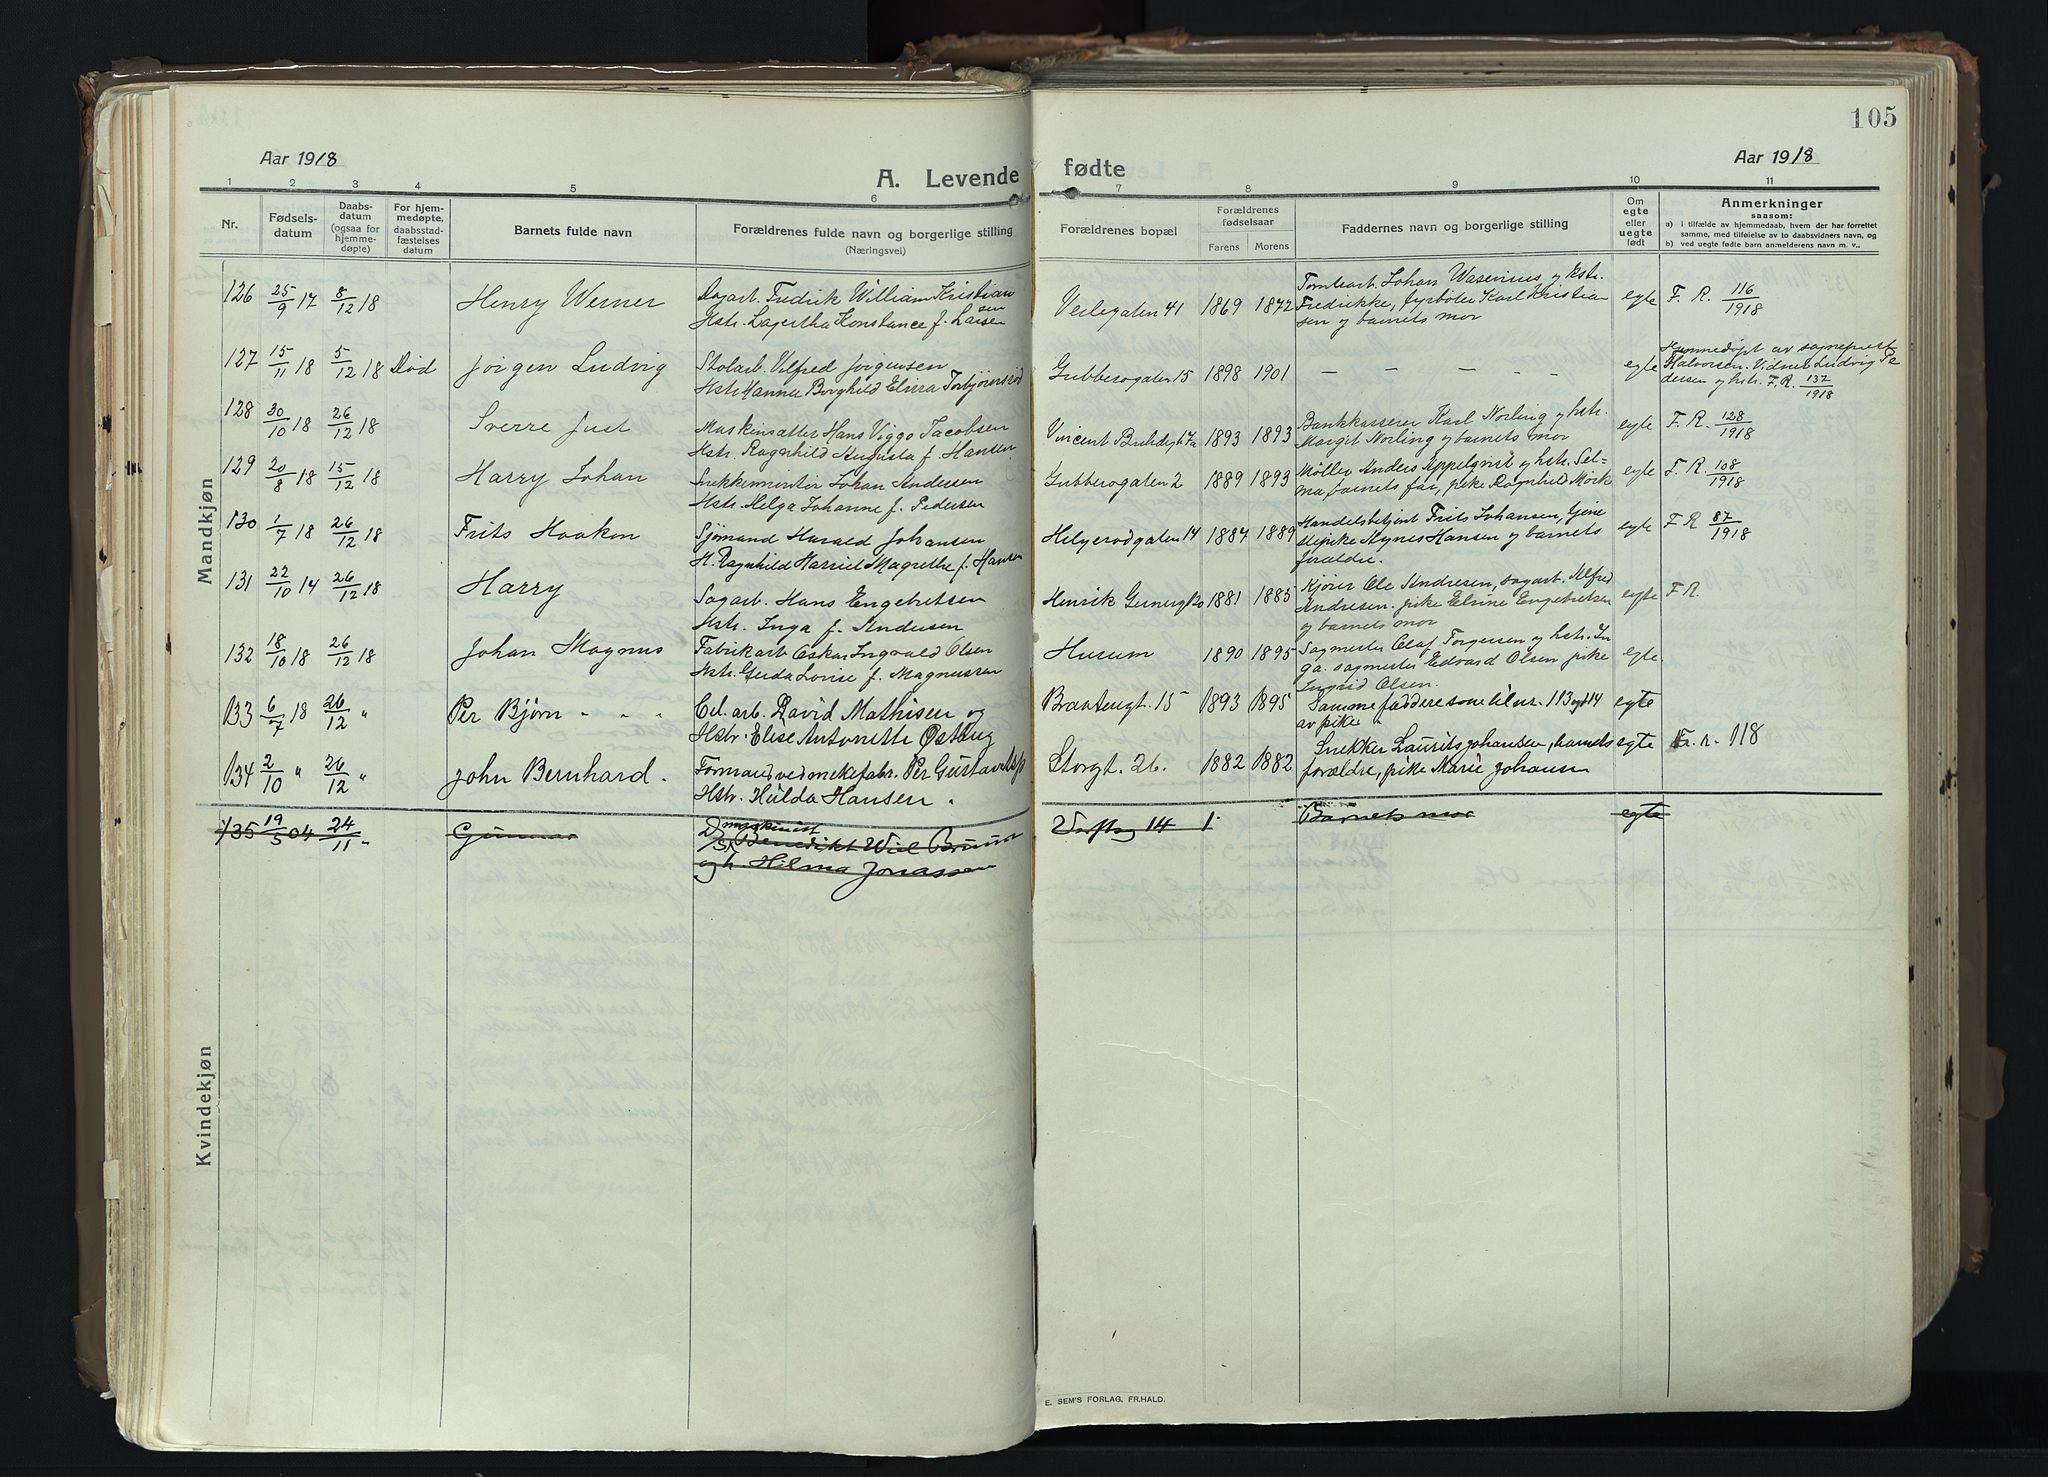 105
Aar 1918
A. Levende
fødte
Aar 1918
1 2 3 4 5 6 7 8 9 10 11
Nr.
Fødsels-
datum
Daabs-
datum
(ogsaa for
hjemme-
døpte)
For hjem-
medøpte,
daabsstad-
fæstelses
datum
Barnets fulde navn
Forældrenes fulde navn og borgerlige stilling
(Næringsvei)
Forældrenes bopæl
Forældrenes
fødselsaar
Farens Morens
Faddernes navn og borgerlige stilling
Om
egte
eller
uegte
født
Anmerkninger
saasom:
a) i tilfælde av hjemmedaab, hvem der har forrettet
samme, med tilføielse av to daabsvidners navn, og
b) ved uegte fødte barn anmelderens navn m. v..
Mandkjøn
126 25/9 17 8/12 18 Henry Werner
Dagarb. Fredrik William Kristian
sen
Hstr. Lagertha Konstance f. Larsen
Veilegaten 41 1869 1872
Tomtearb. Johan Wasenius og hstr.
Fredrikke, fyrbøter Karl Kristian
sen og barnets mor
egte F. R. 116/1918
127 15/11 18 5/12 18 Død Jørgen Ludvig
Stolarb. Vilfred Jørgensen
Hstr. Hanna Borghild Elvira Torbjørnsrød
Gubberogaten 15 1898 1901 — — — — — egte
Hjemmedøpt av sogneprest
Halvorsen. Vidner Ludvig Pe
dersen og hstr. F. R. 137/1918
128 30/10 18 26/12 18 Sverre Just
Maskinsætter Hans Viggo Jacobsen
Hstr. Ragnhild Augusta f. Hansen
Vincent Buhdsgt 7a 1893 1893
Bankkasserer Karl Norling og hstr.
Margit Norling og barnets mor
egte F. R. 128/1918
129 20/8 18 15/12 18 Harry Johan
Snekkermester Johan Andersen
Hstr. Helga Johanne f. Pedersen
Gubberogaten 2 1889 1893
Møller Anders Appelqvist og hstr. Sel-
ma, barnets far, pike Ragnhild Mørk
egte F. R. 108/1918
130 1/7 18 26/12 18 Frits Haakon
Sjømand Harald Johansen
H. Ragnhild Harriet Magrethe f. Hansen
Helgerødgaten 14 1884 1889
Handelsbetjent Frits Johansen, tjene
stepike Agnes Hansen og barnets
foræld̶re.
egte F R 87/1918
131 22/10 14 26/12 18 Harry
Sagarb. Hans Engebretsen
Hstr. Inga f. Andersen
Henrik Gernersgt 20 1881 1885
Kjører Ole Andresen, sagarb. Alfred
Andresen. pike Elvine Engebretsen
og barnets mor
egte F R.
132 18/10 18 26/12 18 Johan Magnus
Fabrikarb Oskar Ingvald Olsen
Hstr. Gerda Lovise f. Magnussen
Husum 1890 1895
Sagmester Olaf Torgersen og hstr. In
ga. sagmester Edvard Olsen pike
Ingrid Olsen.
egte.
133 6/7 18 26/12 " Per Bjørn - - -
Cel. arb. David Mathisen og
Hstr. Elise Antonette Østbyg
Brattengt. 15 1893 1895
Samme faddere som til nr. 113 og 114
av pike
egte
134 2/10 " 26/12 " John Bernhard.
Formand ved mekefabr. Per Gustavel
Hstr. Hulda Hansen.
Storgt. 26. 1882 1882
Snekker Laurits Johansen, barnets
forældre, pike Marie Johansen
egte Fr. r. 118
135 19/5 04 24/11 " Gunnar
maskinist
Benedikt Wiel Bruun
og h. Hilma Jonassen
Værftsg 14 1 Barnets mor egte
Kvindekjøn
E. SEM'S FORLAG, FR.HALD.